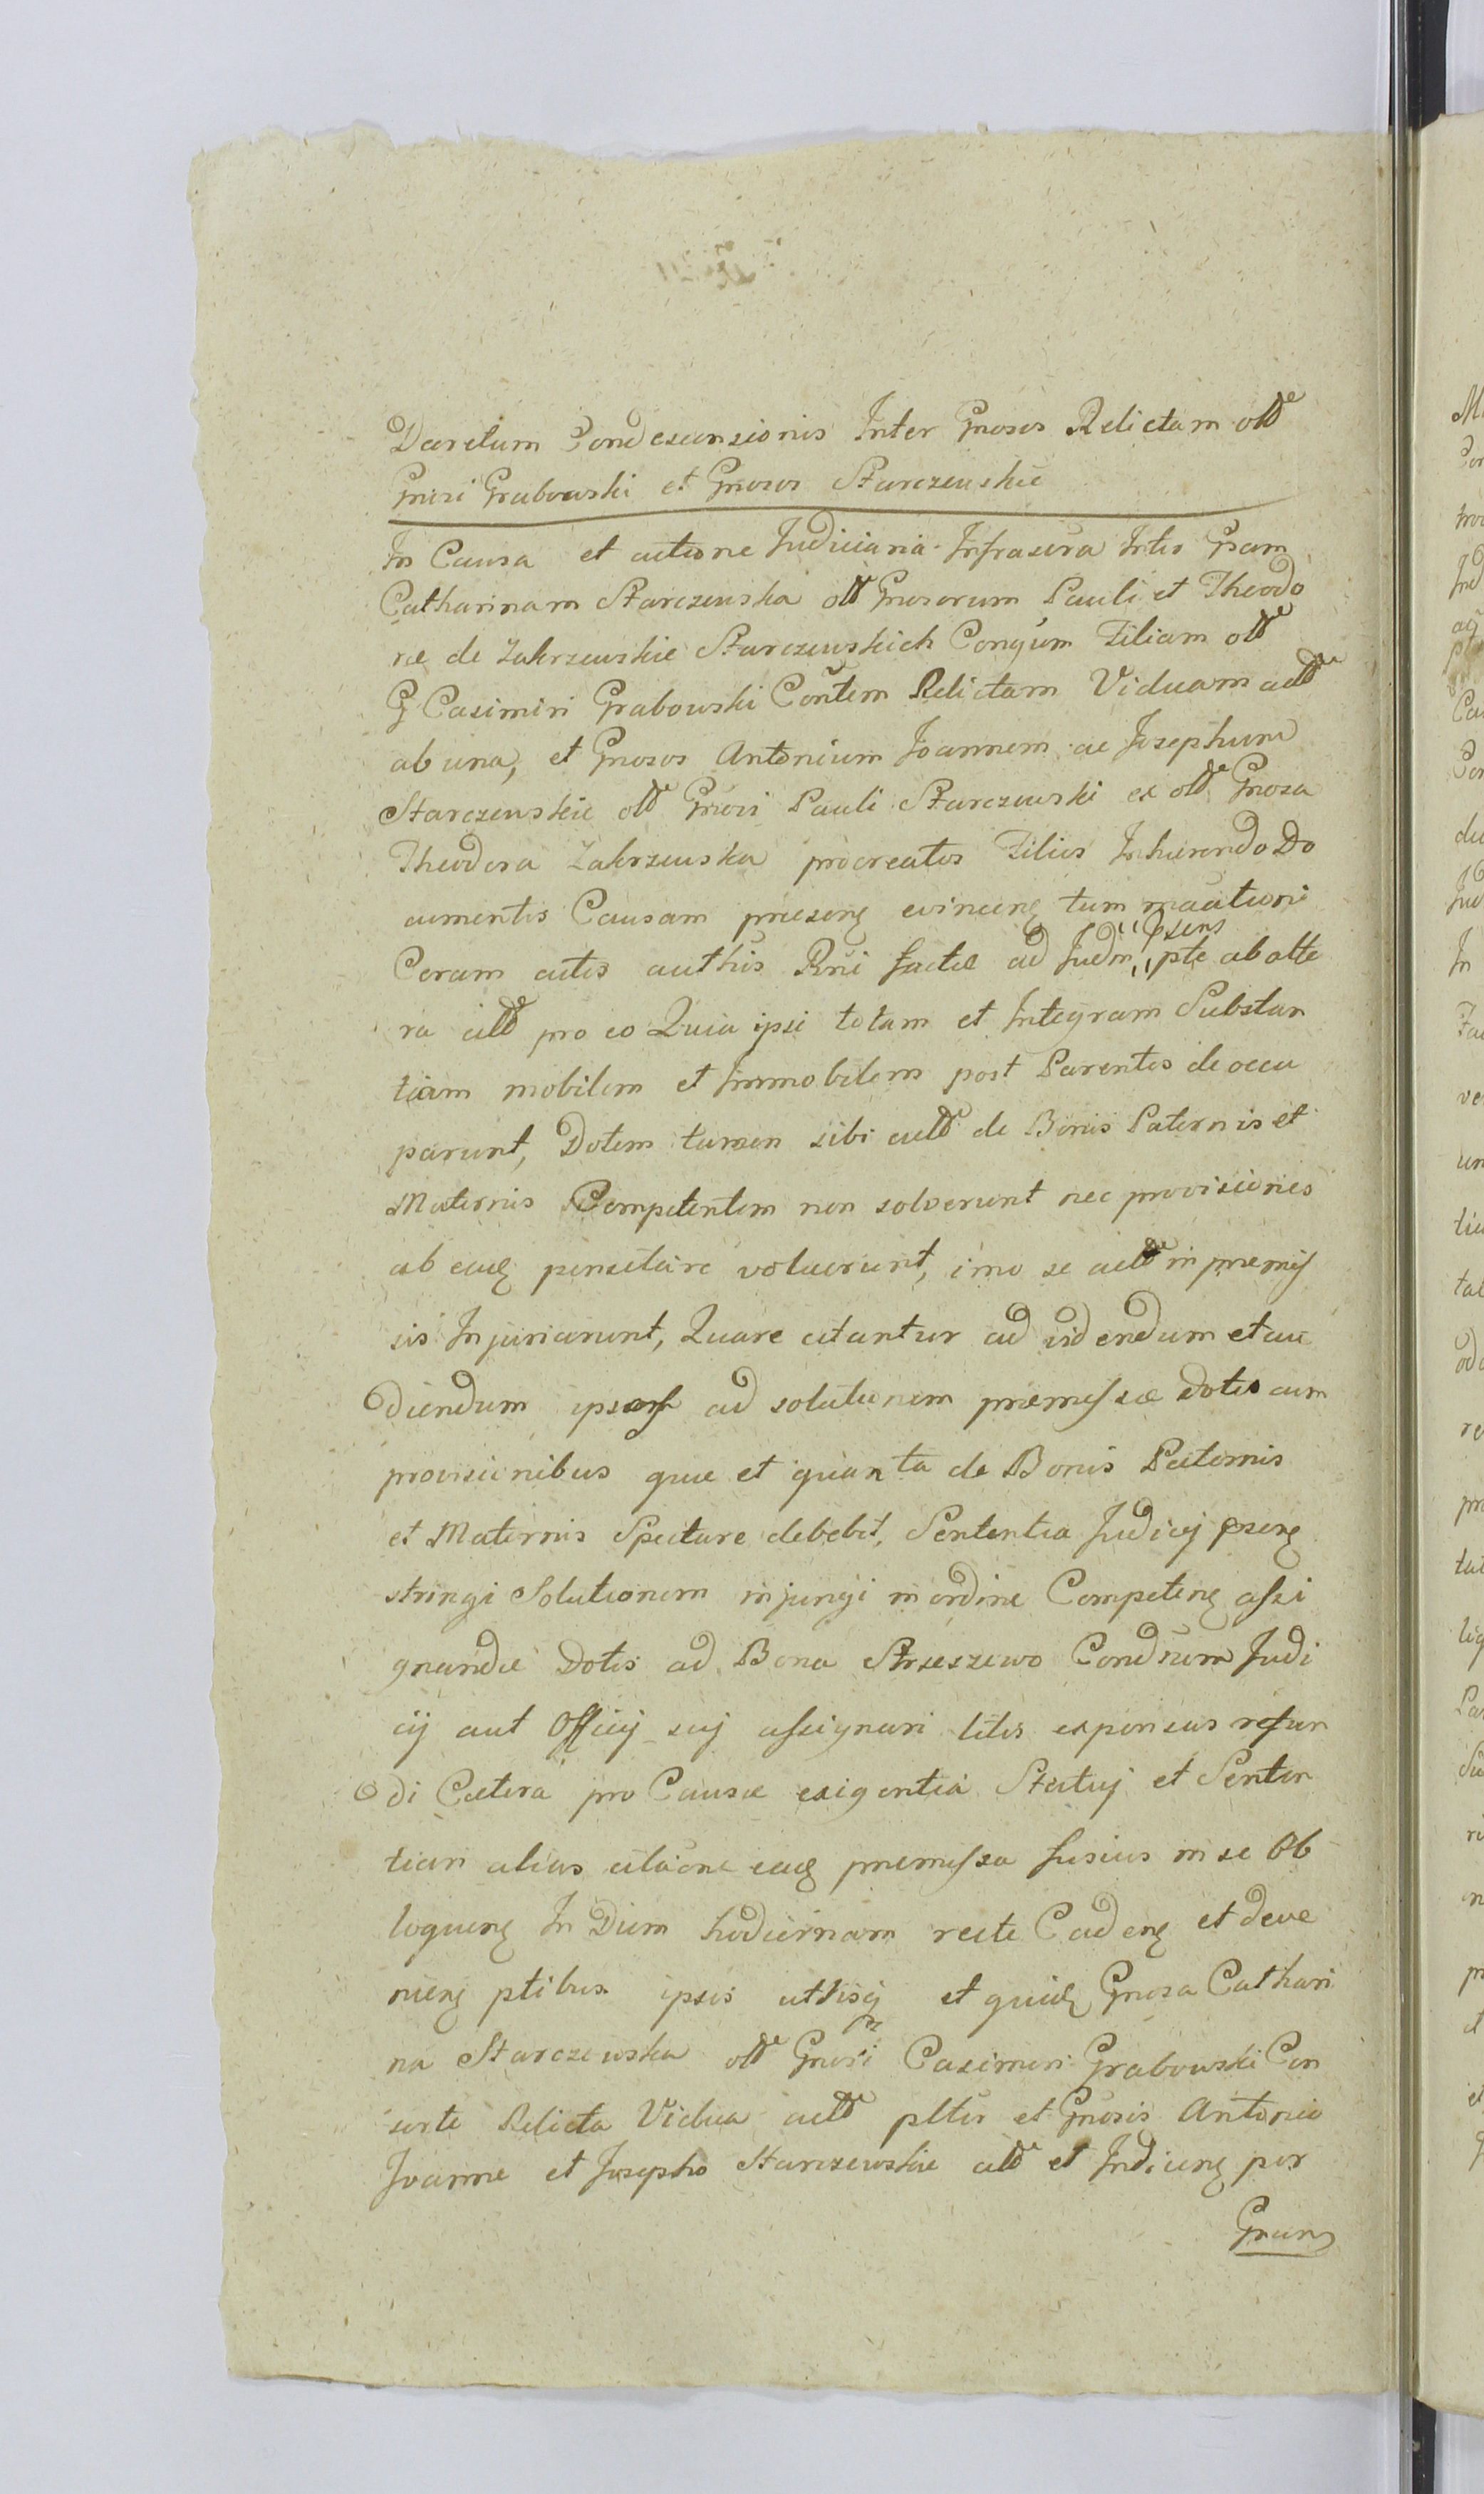 Decretum Condescensionis Inter Gnosos Relictam olt
Gnosi Grabowski et Gnosos Starczewskie
In Causa et actione Judiciaria Infrascra Inter Gsam
Catharinam Starczewska olt Gnosorum Pauli et Theodo
ræ de Zakrzewskie Starczewskich Conjgum Filiam olt
G Casimiri Grabowski Contem Relictam Viduam act
ab una, et Gnosos Antonium Joannem ac Josephum
Starczewskie olt Gnosi Pauli Starczewski ex olt Gnosa
Theodora Zakrzewska procreatos Filios Inhærendo Do
cumentis Causam præsenq evincenq tum
Coram actis authis Rni factæ ad Judm psens pte ab alte
ra citt pro eo Quia ipsi totam et Integram Substan
tiam mobilem et Immobilem post Parentes de occu
parunt, Dotem tamen sibi actt de Bonis Paternis et
Maternis Competentem non solverunt nec provisiones
ab eadq pensitare voluerunt, imo se actt in præmis
sis Injuriarunt, Quare citantur ad videndum et au
diendum ipsos ad solutionem præmissæ Dotis cum
provisionibus quæ et quanta de Bonis Paternis
et Maternis Spectare debebit, Sententia Judicij psenq
stringi Solutionem injungi in ordine Competenq assi
gnandæ Dotis ad Bona Strzeszewo Condsnem Judi
cij aut Officij sui assignari litis expensas refun
di Cætera pro Causæ exigentia Statuj et Senten
tiari alias citaone eadq præmissa fusius in se Ob
loquenq In Diem hodiernam recte Cadenq et deve
nienq ptibus ipsis uthisq et quidq Gnosa Cathari
na Starczewska olt Gnosi Casimiri Grabowski Con
sorte Relicta Vidua actt pltis et Gnosis Antonio
Joanne et Josepho Starczewskie citt et Indicenq per
Gnum